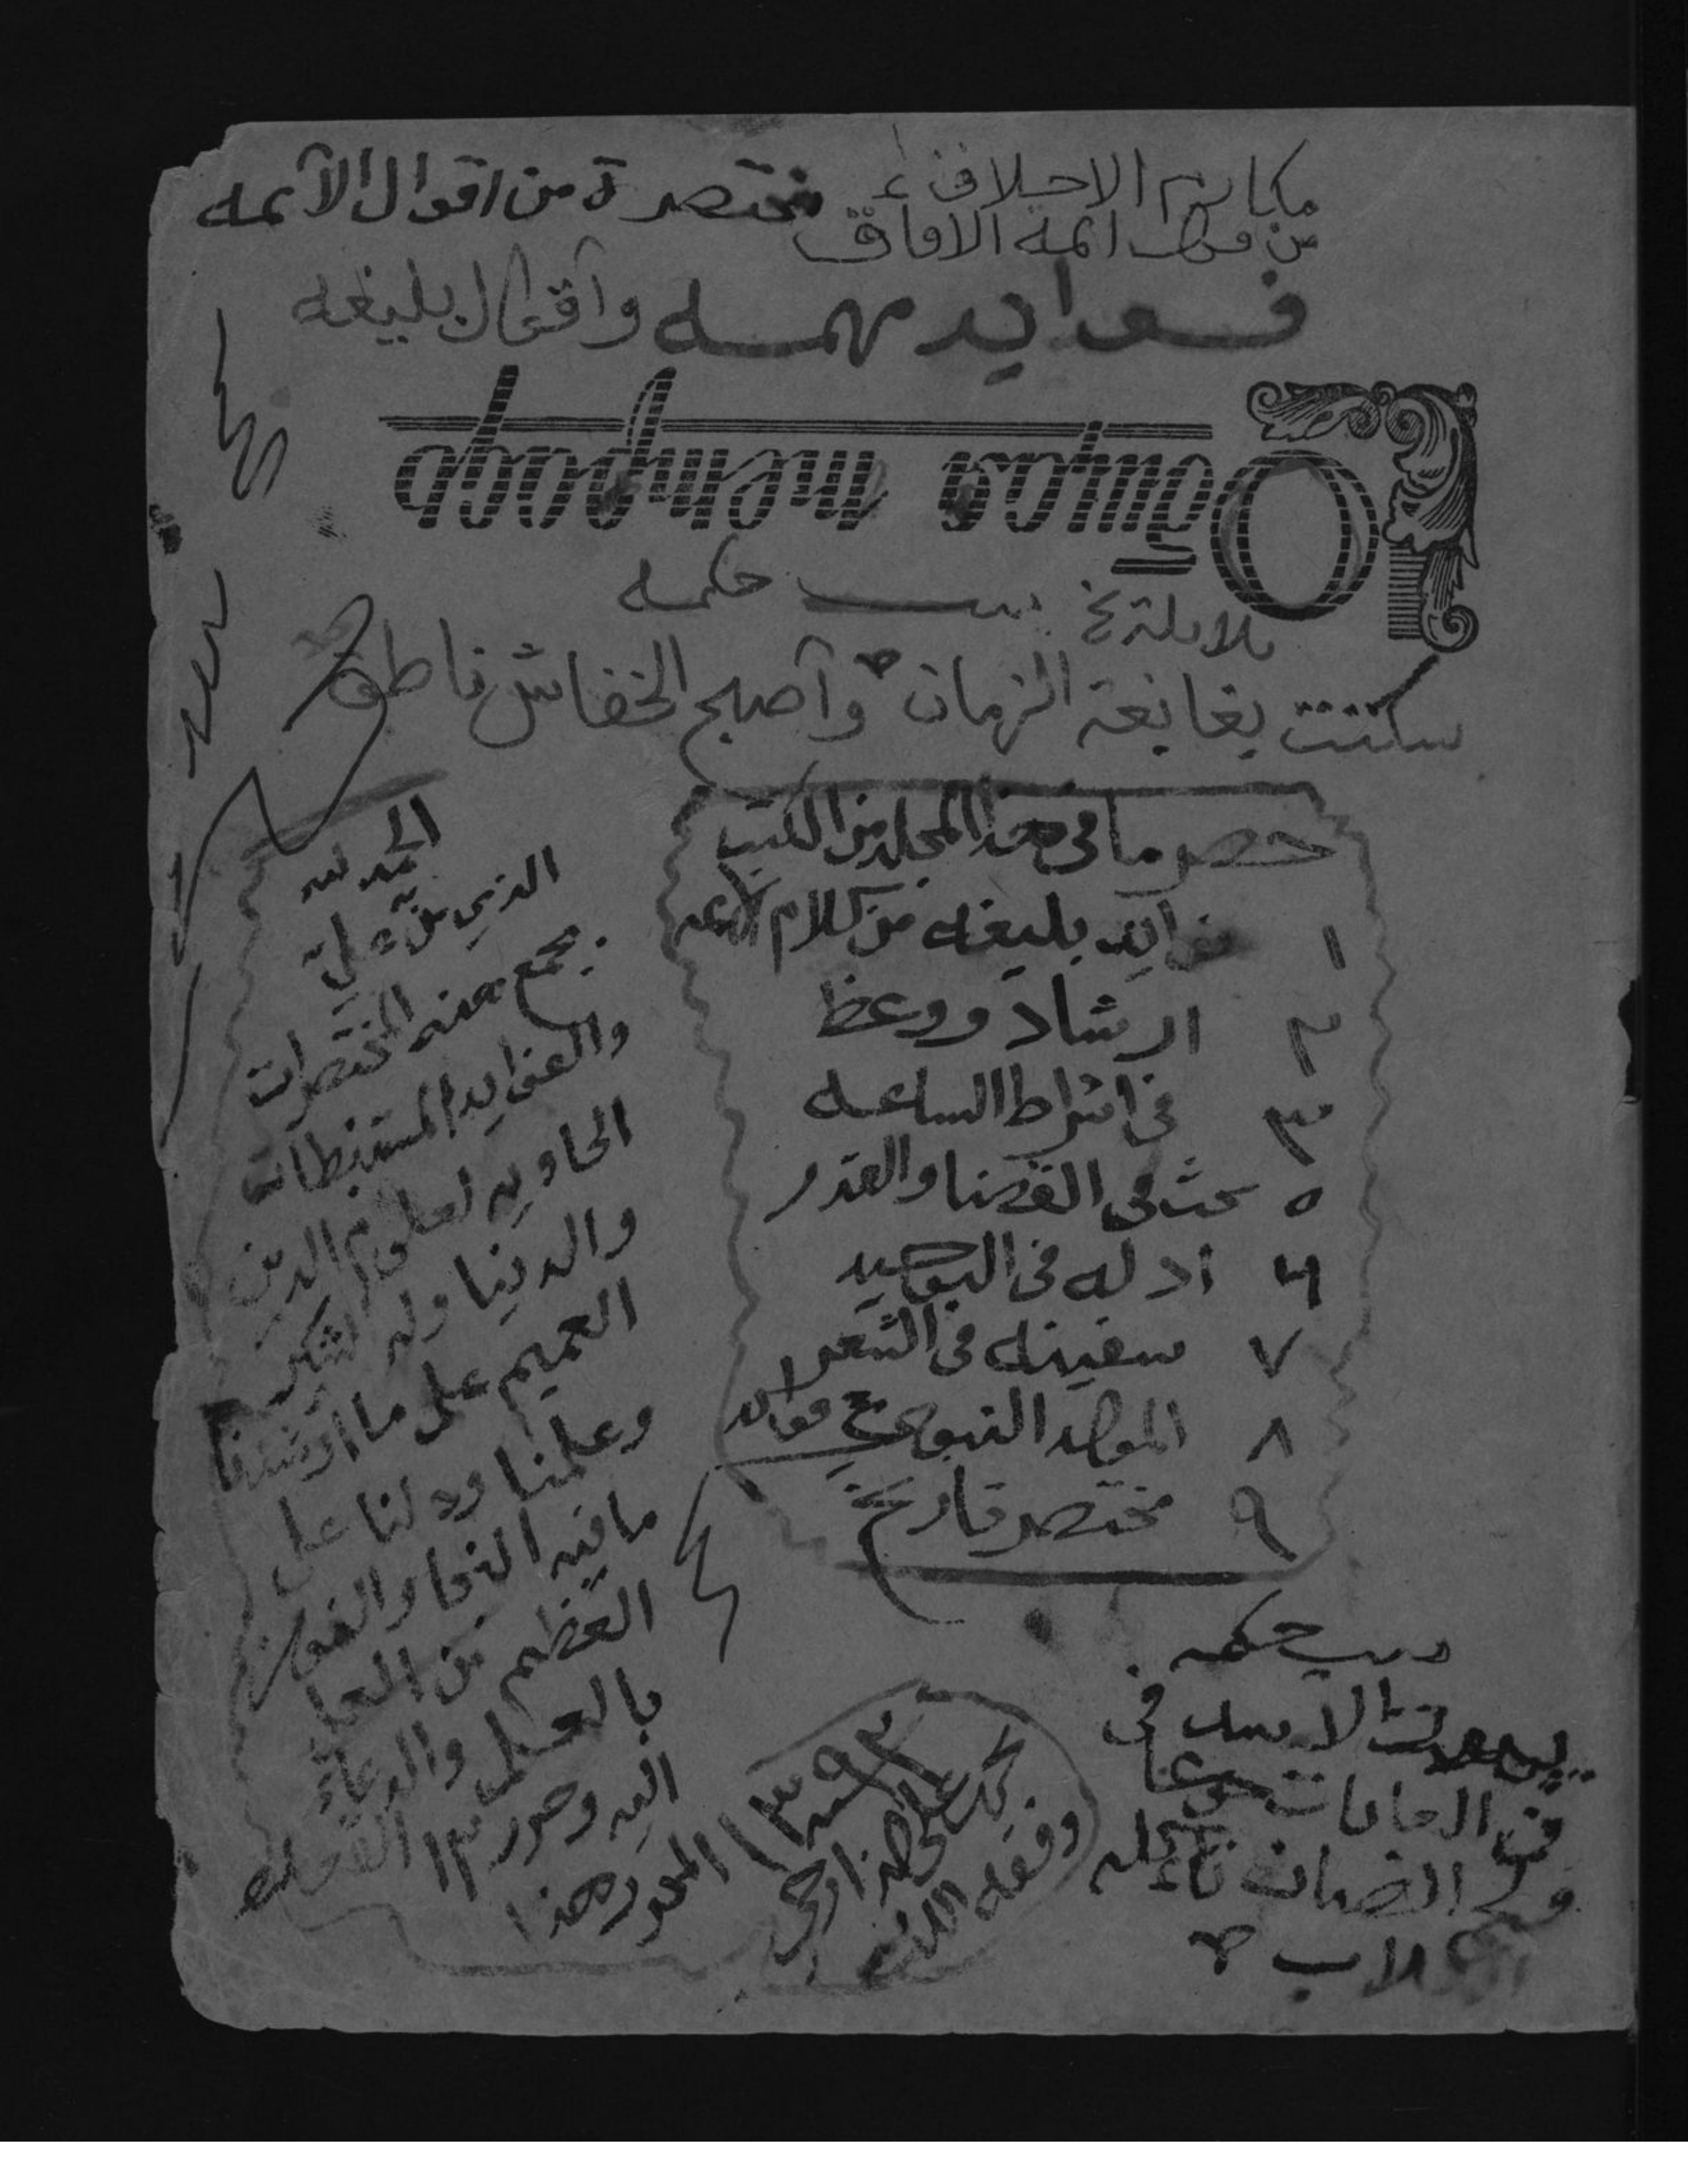 مكارم الاخلاق
من قول ائمة الافاق
مختصرة من اقوال الآئمه
فوايد مهمه وآقوال بليغه
Общая тетрадь
بيت حكمه
سكتت بغابغة الزمان وآصبح الخفاش ناطق
حصر ما في هذا المجلد من الكتب
١ فوايد بليغه من كلام
٢ ارشاد ووعظ
٣ في اشراط الساعه
٥ بحث في القضا والقدر
٦ ادله في التوحيد
٧ سفينه في الشعر
٨ المولد النبوي مع فوائد
٩ مختصر تاريخ
الحمد لله
الذي من علي
بجمع هذه المختصرات
والفوايد المستنبطات
الحاويه لعلوم الدين
والدنيا وله الشكر
العميم على ما ارشدنا
وعلمنا ودلنا على
ما فيه النجا والفوز
العظيم من العمل
بالعمل والدعاء
اليه وحرر
١٣٩٣
وفقه الله
بيت حكمه
الاسد في
الغابات جوعا
الضان تآكله
الكلاب